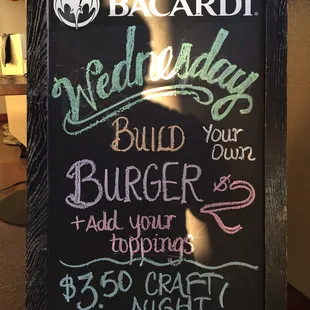 BACARDI
Wednesday
BUILD Your Own
BURGER $2
+ Add your toppings
$3.50 CRAFT
NIGHT!